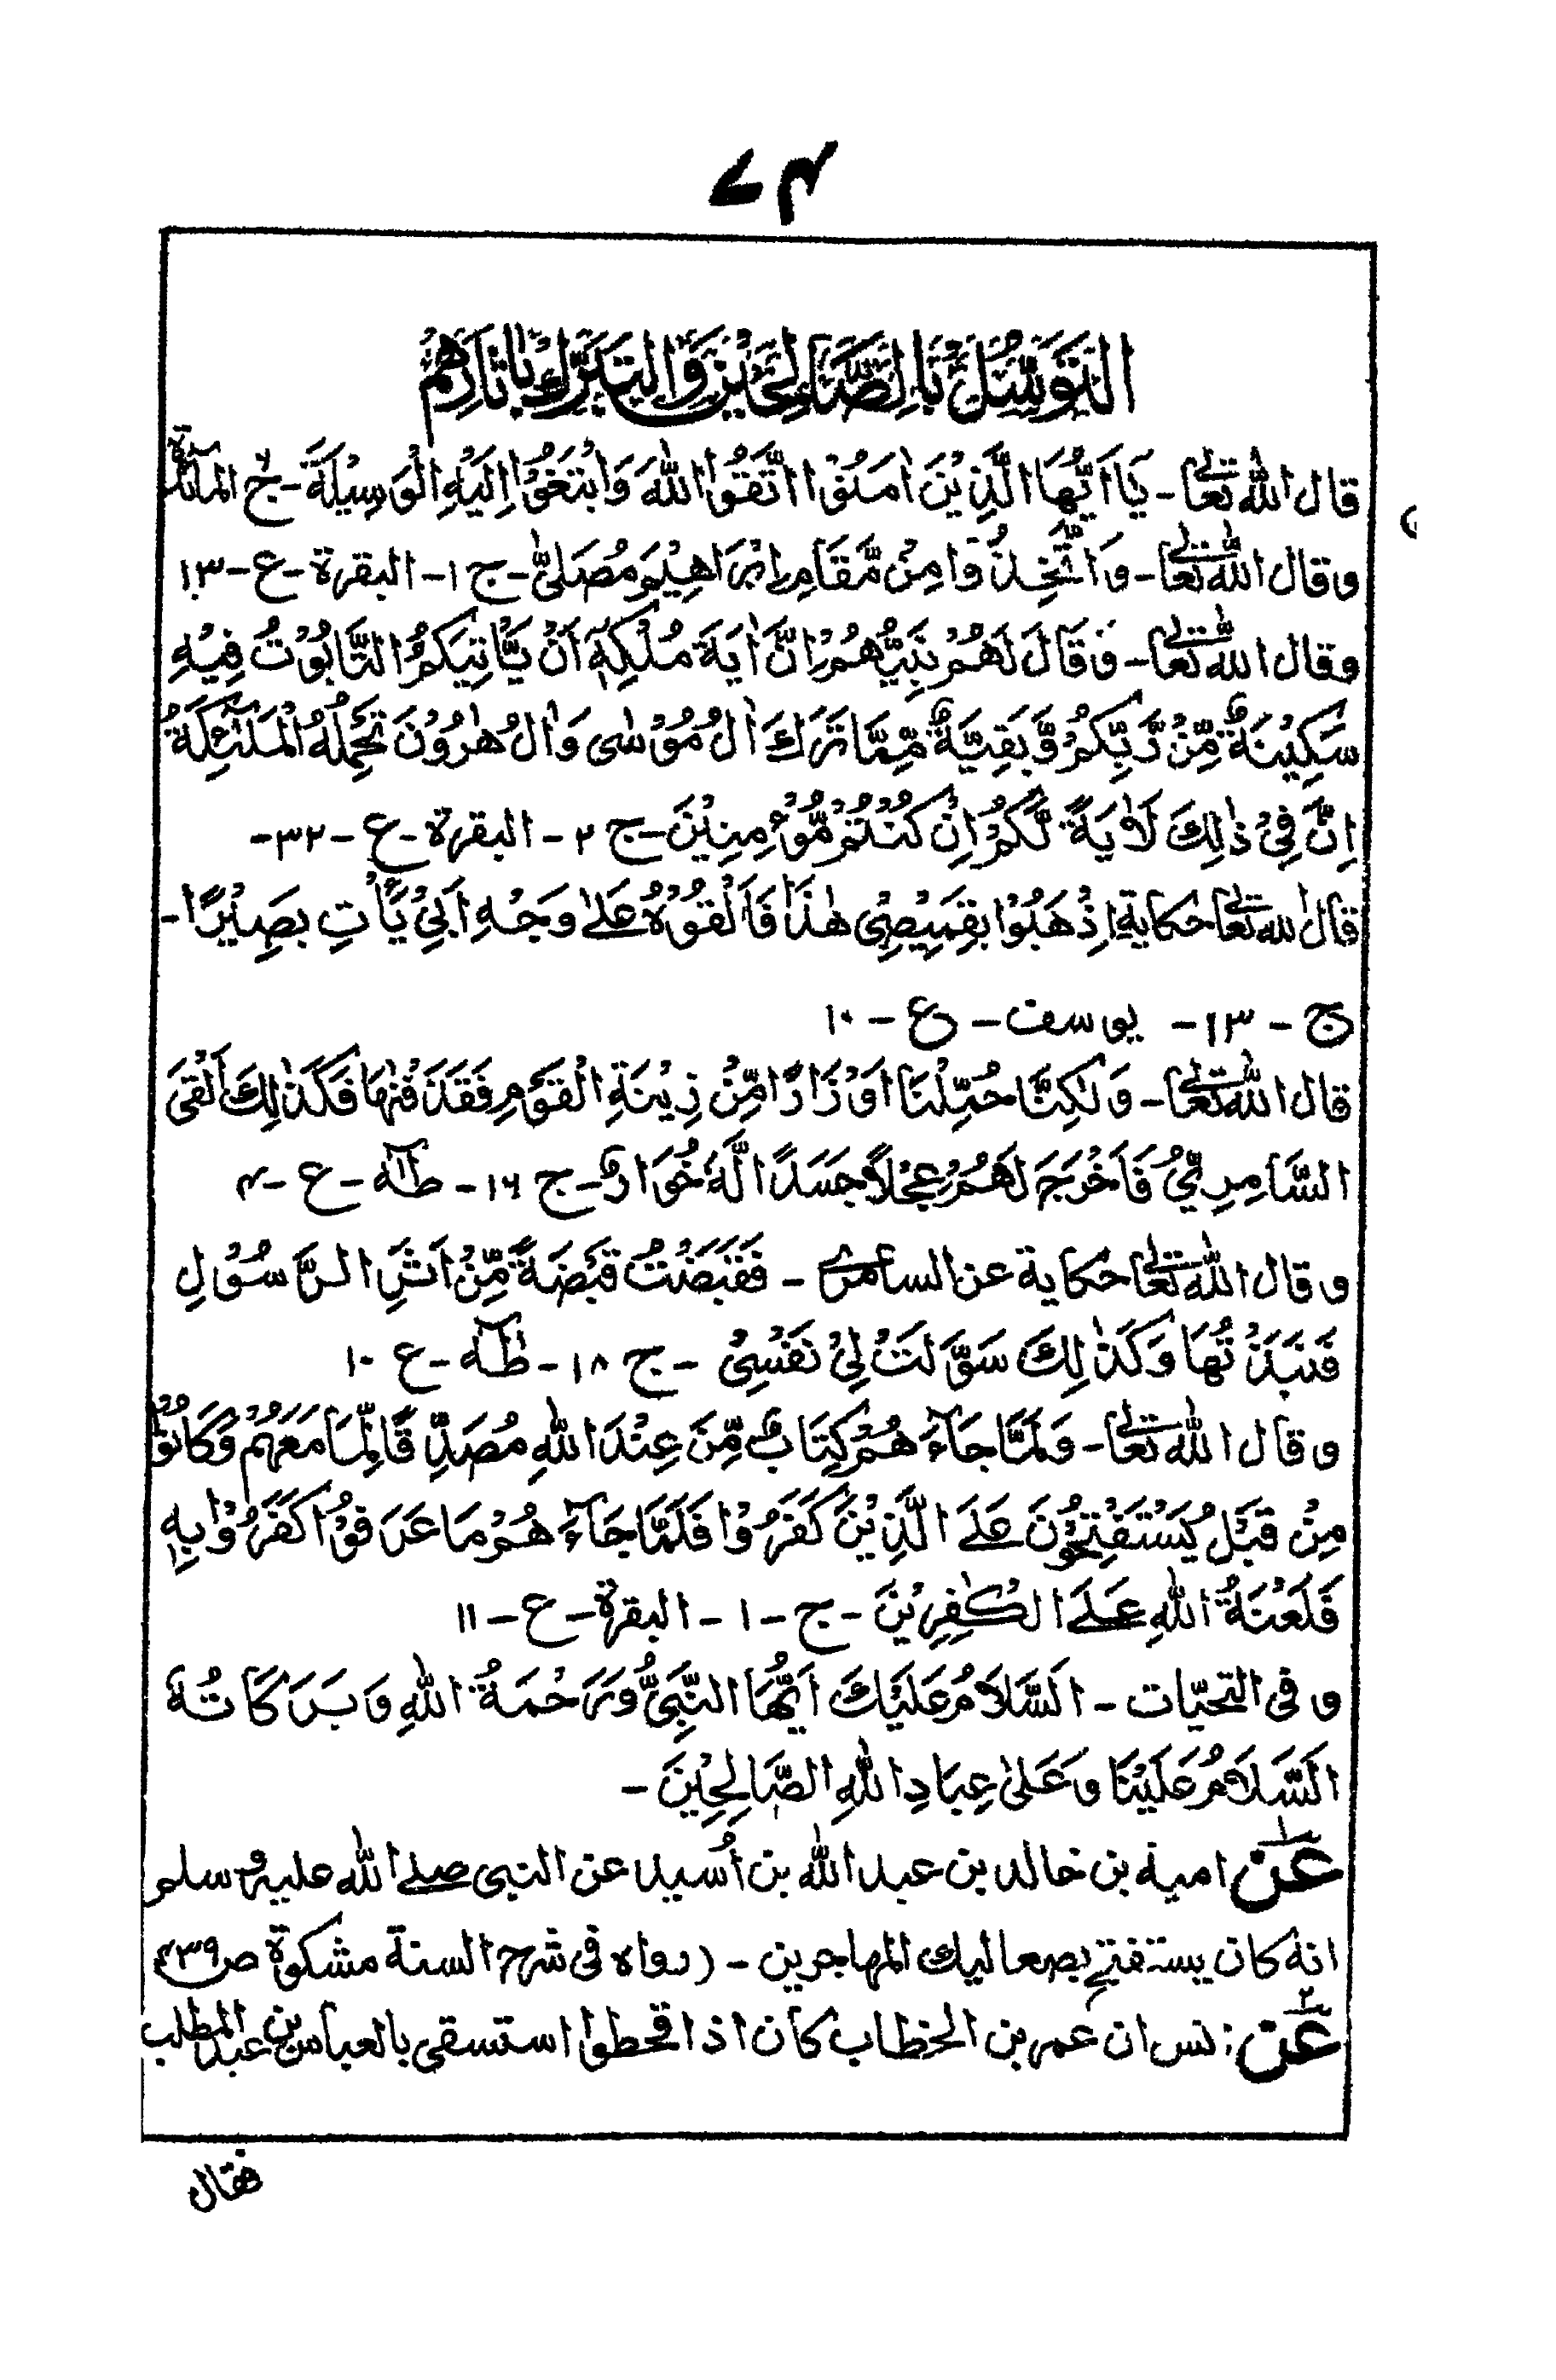 ۷۴
التَّوَسُّلُ بِالصَّالِحِيْنَ وَالتَّبَرُّكُ بِاٰثَارِهِمْ
قال الله تعالیٰ - يَا اَيُّهَا الَّذِيْنَ اٰمَنُوْا اتَّقُوا اللّٰهَ وَابْتَغُوْا اِلَيْهِ الْوَسِيْلَةَ - ج ۶ المائدة
وقال الله تعالیٰ - وَاتَّخِذُوْا مِنْ مَّقَامِ اِبْرَاهِيْمَ مُصَلىًّ - ج ۱ - البقرة - ع - ۱۳
وقال الله تعالیٰ - وَقَالَ لَهُمْ نَبِيُّهُمْ اِنَّ اٰيَةَ مُلْكِهٖٓ اَنْ يَّاْتِيَكُمُ التَّابُوْتُ فِيْهِ
سَكِيْنَةٌ مِّنْ رَّبِّكُمْ وَبَقِيَّةٌ مِّمَّا تَرَكَ اٰلُ مُوْسٰى وَاٰلُ هٰرُوْنَ تَحْمِلُهُ الْمَلٰٓئِكَةُ
اِنَّ فِيْ ذٰلِكَ لَاٰيَةً لَّكُمْ اِنْ كُنْتُمْ مُّؤْمِنِيْنَ - ج ۲ - البقرة - ع - ۳۲ -
قال الله تعالیٰ حكاية اِذْهَبُوْا بِقَمِيْصِىْ هٰذَا فَاَلْقُوْهُ عَلٰى وَجْهِ اَبِيْ يَاْتِ بَصِيْرًا -
ج - ۱۳ - يوسف - ع - ۱۰
قال الله تعالیٰ - وَلٰكِنَّا حُمِّلْنَا اَوْزَارًا مِّنْ زِيْنَةِ الْقَوْمِ فَقَذَفْنٰهَا فَكَذٰلِكَ اَلْقَى
السَّامِرِيُّ فَاَخْرَجَ لَهُمْ عِجْلًا جَسَدًا لَّهٗ خُوَارٌ - ج ۱۶ - طٰهٰ - ع - ۴
وقال الله تعالیٰ حكاية عن السامری - فَقَبَضْتُ قَبْضَةً مِّنْ اَثَرِ الرَّسُوْلِ
فَنَبَذْتُهَا وَكَذٰلِكَ سَوَّلَتْ لِيْ نَفْسِيْ - ج ۱۸ - طٰهٰ - ع ۱۰
وقال الله تعالیٰ - وَلَمَّا جَآءَهُمْ كِتَابٌ مِّنْ عِنْدَ اللّٰهِ مُصَدِّقًا لِّمَا مَعَهُمْ وَكَانُوْا
مِنْ قَبْلُ يَسْتَفْتِحُوْنَ عَلَى الَّذِيْنَ كَفَرُوْا فَلَمَّا جَآءَهُمْ مَا عَرَفُوْا كَفَرُوْا بِهٖ
فَلَعْنَةُ اللّٰهِ عَلَى الْكٰفِرِيْنَ - ج - ۱ - البقرة - ع - ۱۱
و فى التحيّات - اَلسَّلَامُ عَلَيْكَ اَيُّهَا النَّبِىُّ وَرَحْمَةُ اللّٰهِ وَبَرَكَاتُهٗ
اَلسَّلَامُ عَلَيْنَا وَعَلىٰ عِبَادِ اللّٰهِ الصَّالِحِيْنَ -
عن۱ امية بن خالد بن عبد الله بن اُسيد عن النبى صلى الله عليه وسلم
انه كان يستفتح بصعاليك المهاجرين - (رواه فى شرح السنة مشكوة ص۴۳۹
عن۲ انس ان عمر بن الخطاب كان اذا قحطوا استسقى بالعباس بن عبد المطلب
فقال